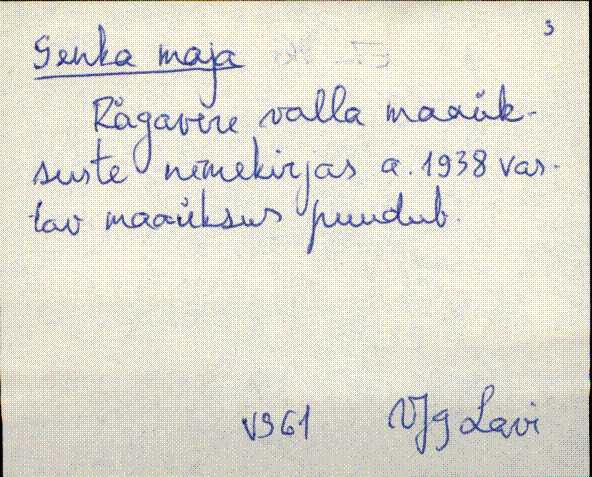 3
Senka maja
Rägavere valla maaük-
suste nimekirjas a. 1938 vas-
tav maaüksus puudub.
VJg Lavi